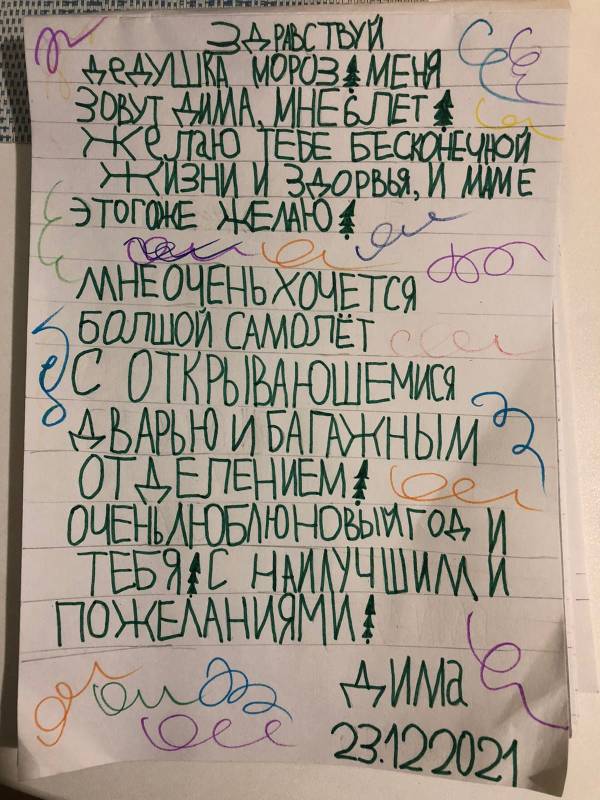 ЗДРАВСТВУЙ
ДЕДУШКА МОРОЗ МЕНЯ
ЗОВУТ ДИМА, МНЕ 6 ЛЕТ
ЖЕЛАЮ ТЕБЕ БЕСКОНЕЧНОЙ
ЖИЗНИ И ЗДОРВЬЯ, И МАМЕ
ЭТОГОЖЕ ЖЕЛАЮ
МНЕ ОЧЕНЬ ХОЧЕТСЯ
БОЛШОЙ САМОЛЁТ
С ОТКРЫВАЮШЕМИСЯ
ДВАРЬЮ И БАГАЖНЫМ
ОТДЕЛЕНИЕМ
ОЧЕНЬ ЛЮБЛЮ НОВЫЙ ГОД И
ТЕБЯ С НАИЛУЧШИМИ
ПОЖЕЛАНИЯМИ
ДИМА
23.12.2021